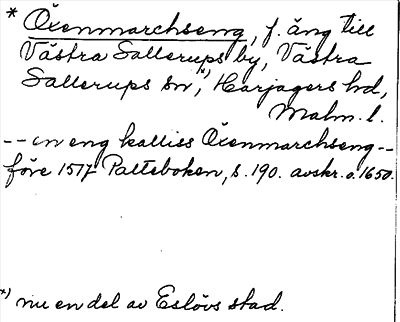 * Öxenmarchseng, f. äng till
Västra Sallerups by, Västra
Sallerups sn*), Harjagers hd,
Malm. l.
-- en eng kalliss Öxenmarchseng --
före 1517 Palteboken, s. 190. avskr. o. 1650.
*) nu en del av Eslövs stad.